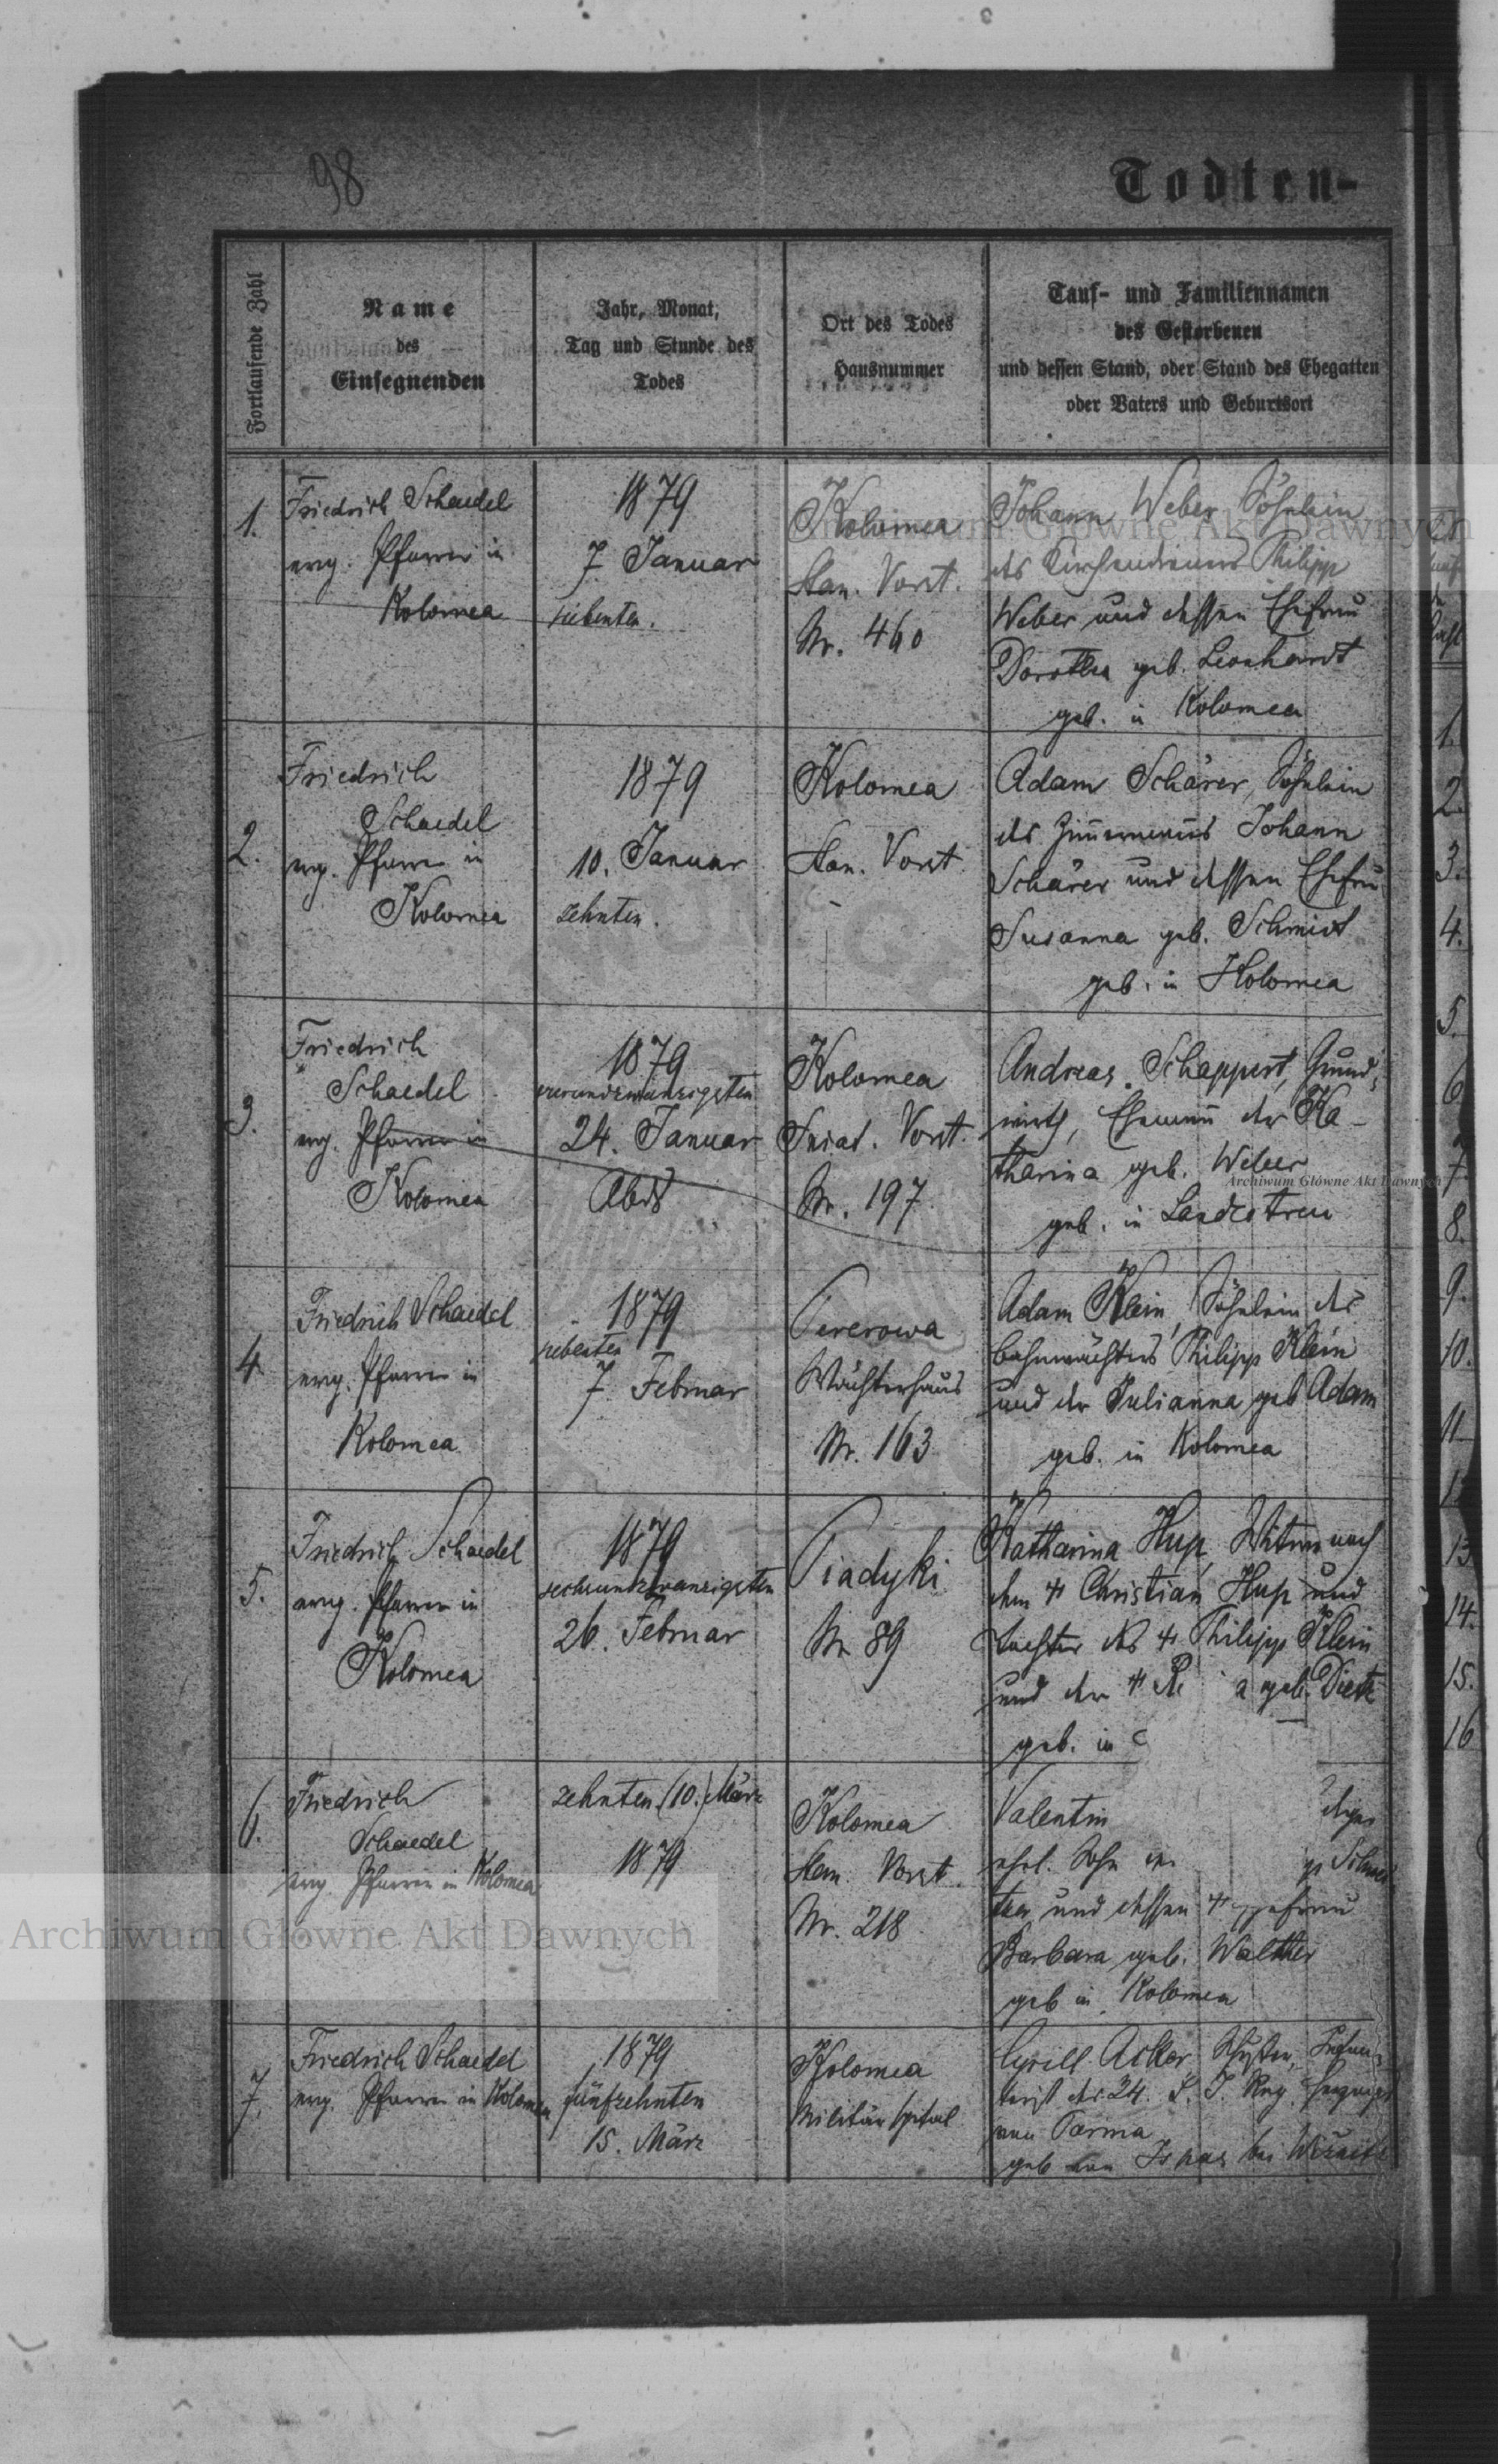 98
Todten-
Fortlaufende Zahl
Name
des
Einsegnenden
Jahr, Monat,
Tag und Stunde des
Todes
Ort des Todes
Hausnummer
Tauf- und Familiennamen
des Gestorbenen
und dessen Stand, oder Stand des Ehegatten
oder Vaters und Geburtsort
1.
Friedrich Schaedel
evg. Pfarrer in
Kolomea
1879
7. Januar
siebenten.
Kolomea
Stan. Vorst.
Nr. 460
Johann Weber Söhnlein
des Kirchendieners Philipp
Weber und dessen Ehefrau
Dorothea geb. Leonhardt
geb. in Kolomea
2.
Friedrich
Schaedel
evg. Pfarrer in
Kolomea
1879
10. Januar
zehnten.
Kolomea
Stan. Vorst.
Adam Schärer, Söhnlein
des Zimmermanns Johann
Schärer und dessen Ehefrau
Susanna geb. Schmidt
geb. in Kolomea
3.
Friedrich
Schaedel
evg. Pfarrer in
Kolomea
1879
vierundzwanzigsten
24. Januar
Abds
Kolomea
Sniat. Vorst.
Nr. 197
Andreas Schappert, Grund-
wirth, Ehemann der Ka-
tharina geb. Weber
geb. in Landestreu
4.
Friedrich Schaedel
evg. Pfarrer in
Kolomea
1879
siebenten
7 Februar
Pererowa
Wächterhaus
Nr. 163
Adam Klein, Söhnlein des
Bahnwächters Philipp Klein
und der Julianna geb Adam
geb. in Kolomea
5.
Friedrich Schaedel
evg. Pfarrer in
Kolomea
1879
sechsundzwanzigsten
26. Februar
Piadyki
Nr 89
Katharina Hup, Witwe nach
dem Christian Hup und
Tochter des Philipp Klein
und der a geb. Dietz
geb. in
6.
Friedrich
Schaedel
evg. Pfarrer in Kolomea
zehnten (10.) März
1879
Kolomea
Stan. Vorst.
Nr. 218
Valentin
ehel. Sohn
und dessen Ehefrau
Barbara geb. Walther
geb in Kolomea
7.
Friedrich Schaedel
evg. Pfarrer in Kolomea
1879
fünfzehnten
15. März
Kolomea
Militärspital
Cyrill
des 24. L. I. Reg. Herzog
von Parma
geb von Ispas bei
1.
2.
3.
4.
5.
6
7.
8.
9.
10.
11
13
14.
15.
16
Archiwum Główne Akt Dawnych
Archiwum Główne Akt Dawnych
Archiwum Główne Akt Dawnych